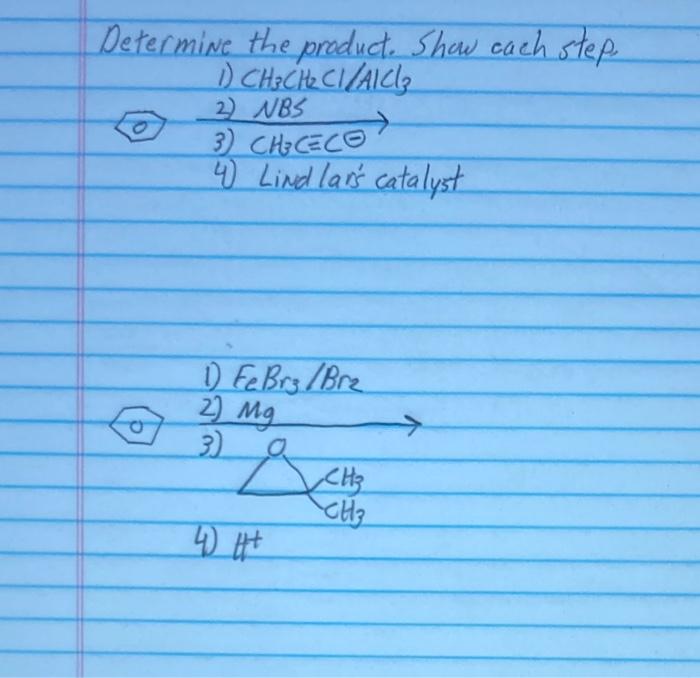 Determine the product. Show each step.
1) CH3CH2Cl/AlCl3
2) NBS
3) CH3C≡C⊖
4) Lindlar's catalyst
1) FeBr3/Br2
2) Mg
3) O
CH3
CH3
4) H+